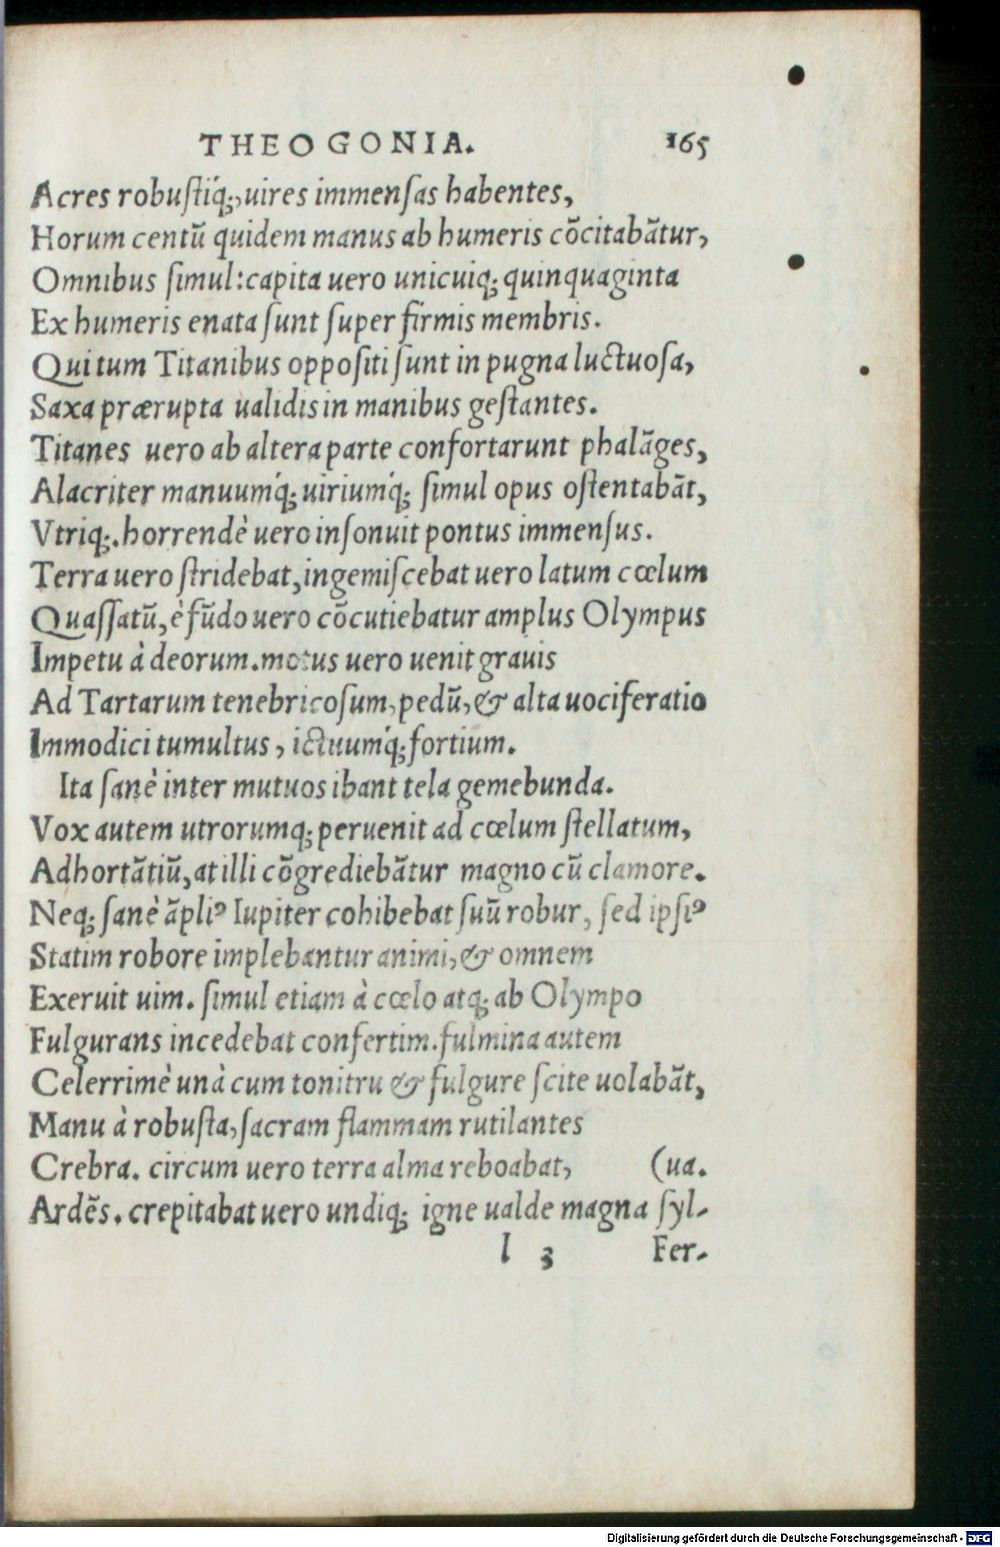 THEOGONIA. 165
Acres robuſtiq́;, uires immenſas habentes,
Horum centū quidem manus ab humeris cōcitabātur,
Omnibus ſimul: capita uero unicuiq; quinquaginta
Ex humeris enata ſunt ſuper firmis membris.
Qui tum Titanibus oppoſiti ſunt in pugna luctuoſa,
Saxa prærupta ualidis in manibus geſtantes.
Titanes uero ab altera parte confortarunt phalāges,
Alacriter manuumq́; uiriumq́; ſimul opus oſtentabāt,
Vtriq;. horrendè uero inſonuit pontus immenſus.
Terra uero ſtridebat, ingemiſcebat uero latum cœlum
Quaſſatū, è fūdo uero cōcutiebatur amplus Olympus
Impetu à deorum. motus uero uenit grauis
Ad Tartarum tenebricoſum, pedū, & alta uociferatio
Immodici tumultus, ictuumq́; fortium.
Ita ſanè inter mutuos ibant tela gemebunda.
Vox autem utrorumq; peruenit ad cœlum ſtellatum,
Adhortātiū, at illi cōgrediebātur magno cū clamore.
Neq; ſanè āpliꝰ Iupiter cohibebat ſuū robur, ſed ipſiꝰ
Statim robore implebantur animi, & omnem
Exeruit uim. ſimul etiam à cœlo atq; ab Olympo
Fulgurans incedebat confertim. fulmina autem
Celerrimè unà cum tonitru & fulgure ſcite uolabāt,
Manu à robuſta, ſacram flammam rutilantes
Crebra. circum uero terra alma reboabat, (ua.
Ardēs. crepitabat uero undiq; igne ualde magna ſyl-
l 3 Fer-
Digitalisierung gefördert durch die Deutsche Forschungsgemeinschaft - DFG